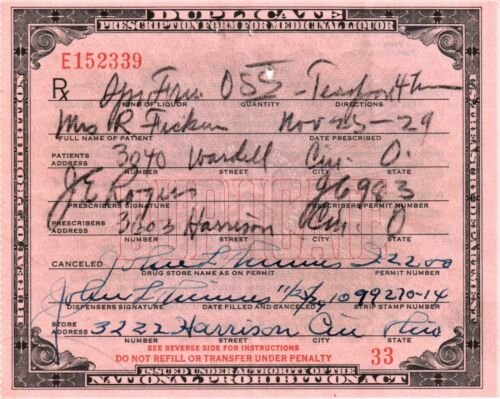 DUPLICATE
PRESCRIPTION FORM FOR MEDICINAL LIQUOR
E152339
Rx
KIND OF LIQUOR QUANTITY DIRECTIONS
Mrs R. Nov 25 - 29
FULL NAME OF PATIENT DATE PRESCRIBED
PATIENTS ADDRESS 3040 Wardell Cin. O.
NUMBER STREET CITY STATE
J E Rogers 96983
PRESCRIBERS SIGNATURE PRESCRIBERS PERMIT NUMBER
PRESCRIBERS ADDRESS 3203 Harrison Cin. O
NUMBER STREET CITY STATE
CANCELED John L
DRUG STORE NAME AS ON PERMIT PERMIT NUMBER
John L 1099270-14
DISPENSERS SIGNATURE DATE FILLED AND CANCELED STRIP STAMP NUMBER
STORE ADDRESS 3222 Harrison Cin Ohio
NUMBER STREET CITY STATE
SEE REVERSE SIDE FOR INSTRUCTIONS
DO NOT REFILL OR TRANSFER UNDER PENALTY 33
ISSUED UNDER AUTHORITY OF THE
NATIONAL PROHIBITION ACT
BUREAU OF PROHIBITION